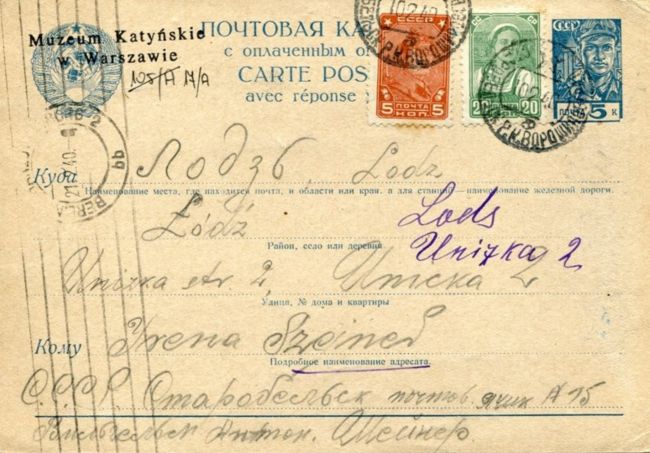 ПОЧТОВАЯ КА
Muzeum Katyńskie
w Warszawie
с оплаченным о
CARTE POS
avec réponse
СССР
5 ПОЧТА 5
КОП.
20 20
СССР
5 К
10 2 40
Куда
Лодзь, Lodz
Наименование места, где находится почта, и области или края, а для станций—наименование железной дороги.
Łódź
Lods
Район, село или деревня
2
str. 2, 2
Улица, № дома и квартиры
Кому
Irena
Подробное наименование адресата.
СССР Старобельск почтов. ящик А 15
Антон. Шейнер.